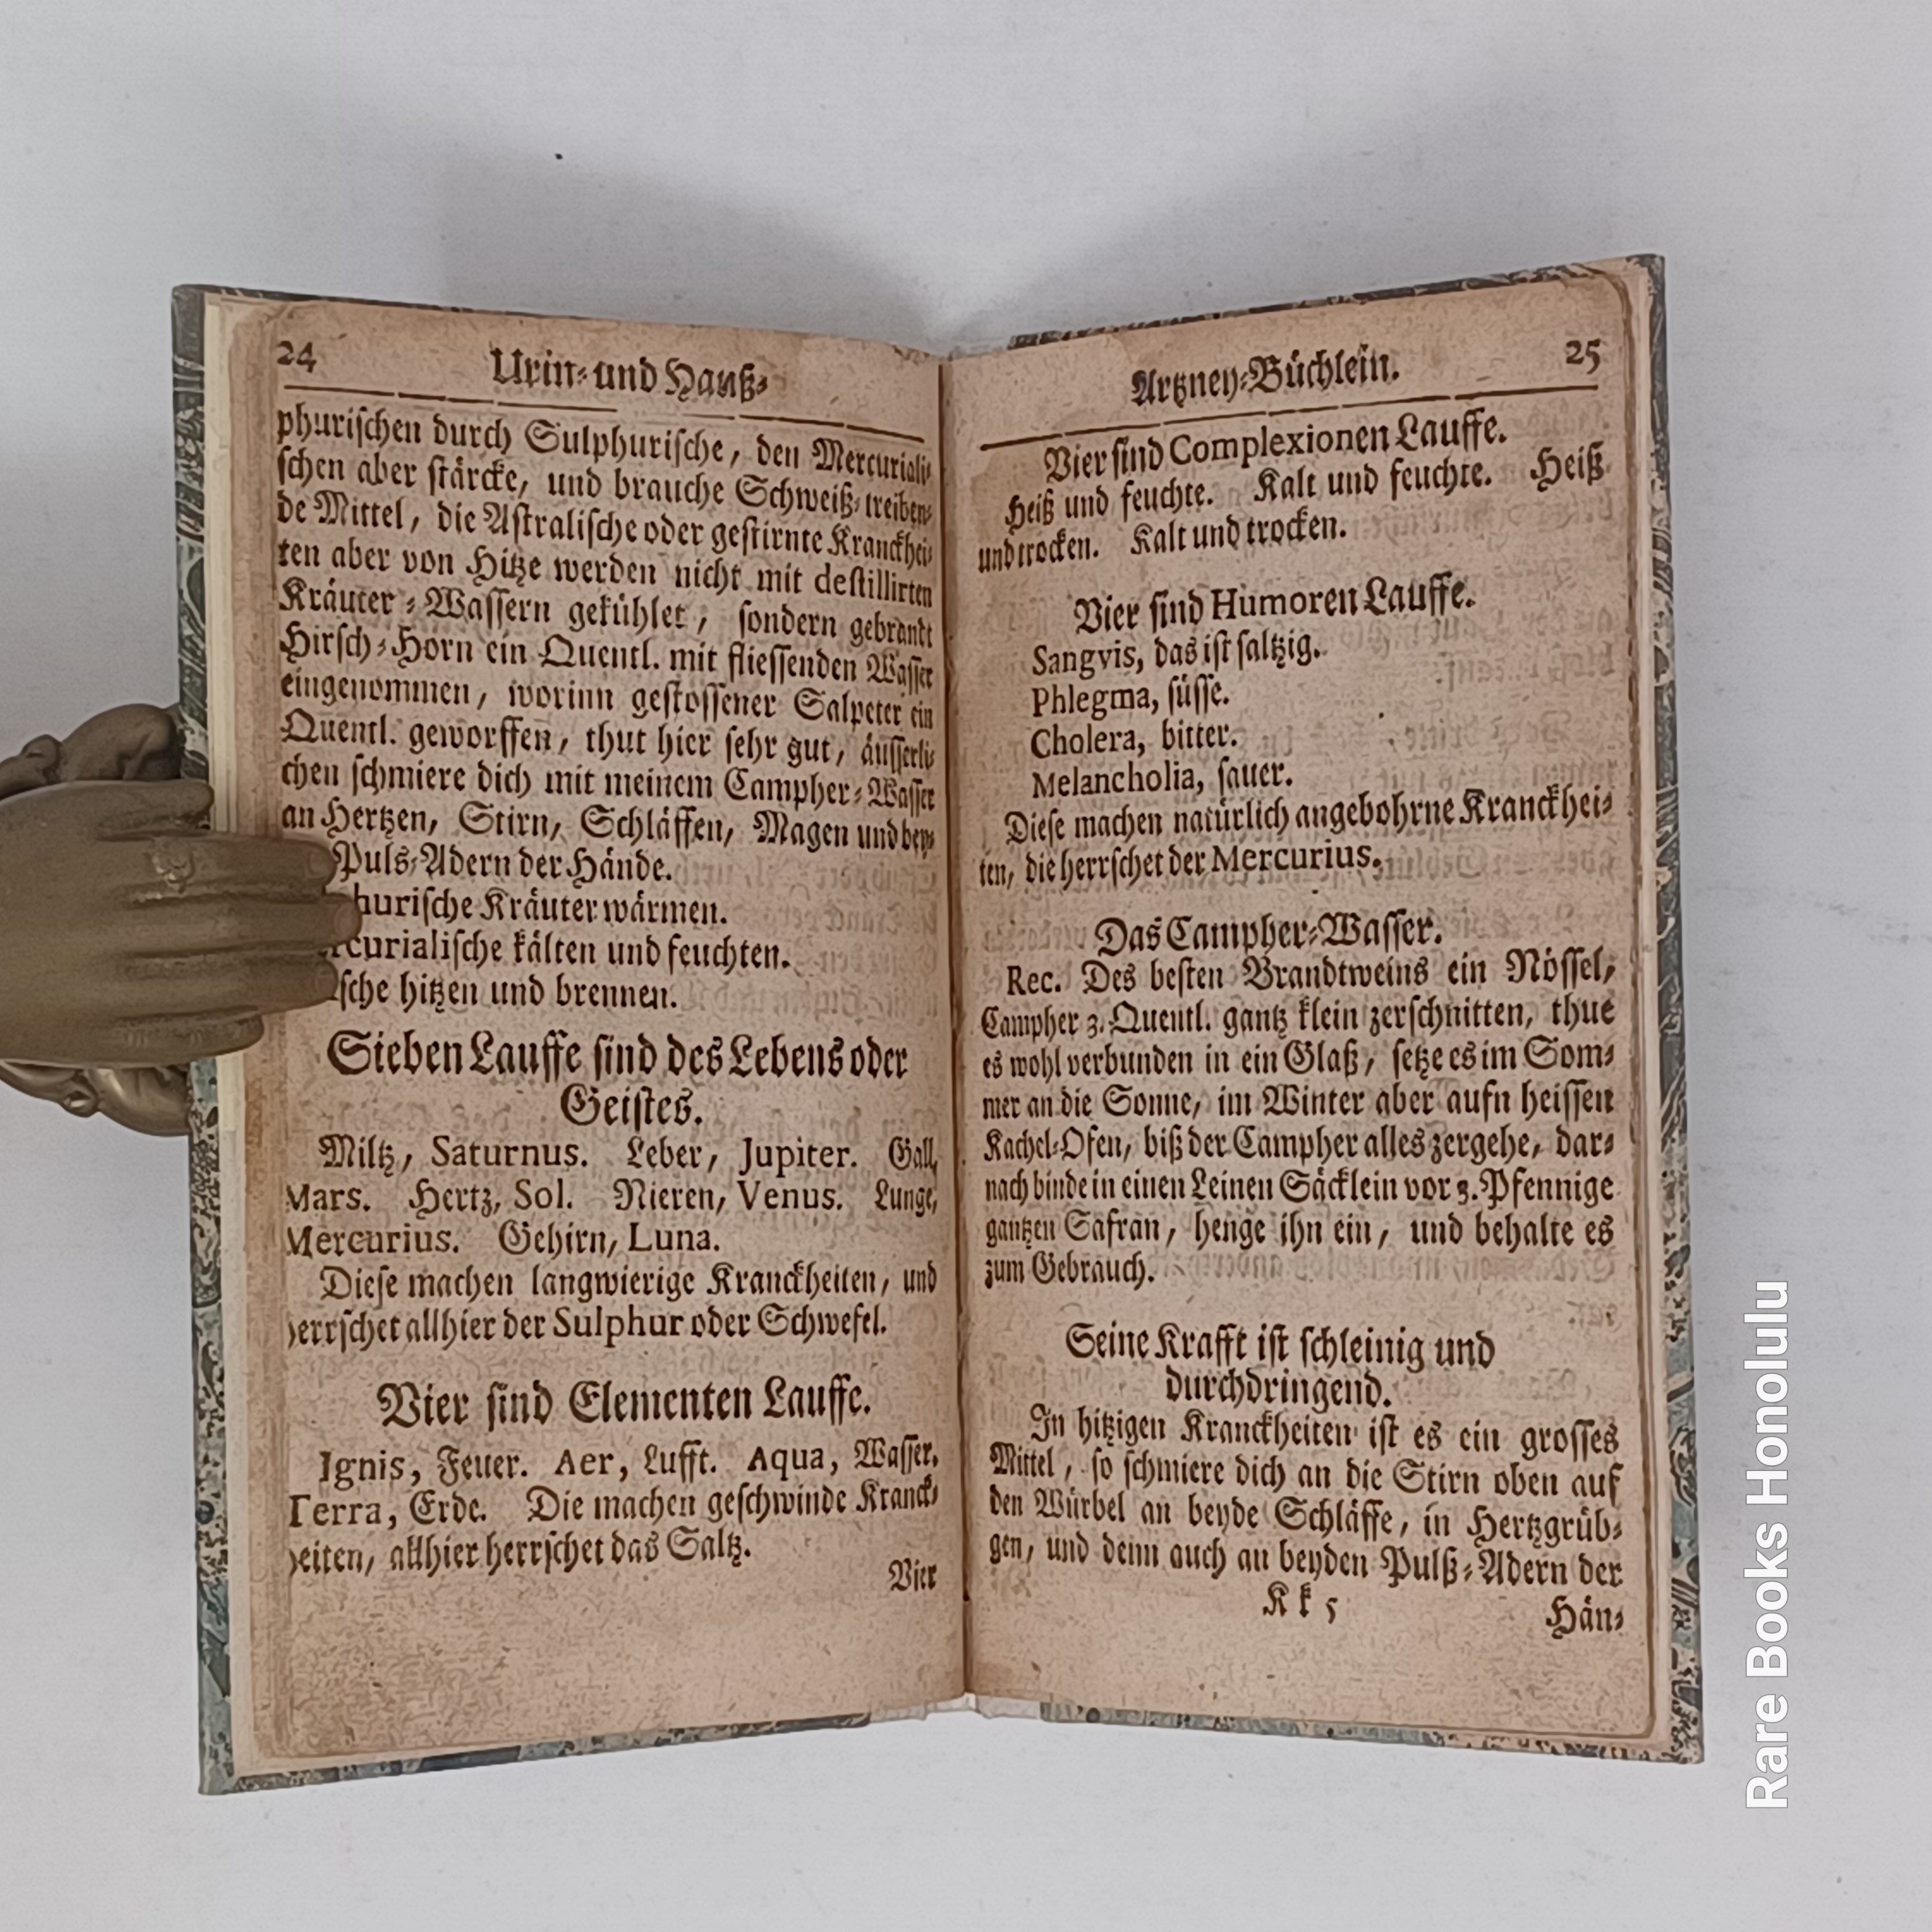 24
Urin⸗ und Hauß⸗
phurischen durch Sulphurische, den Mercuriali⸗
schen aber stärcke, und brauche Schweiß⸗treiben⸗
de Mittel, die Astralische oder gestirnte Kranckhei⸗
ten aber von Hitze werden nicht mit destillirten
Kräuter⸗Wassern gekühlet, sondern gebrandt
Hirsch⸗Horn ein Quentl. mit fliessenden Wasser
eingenommen, worinn gestossener Salpeter ein
Quentl. geworffen, thut hier sehr gut, äusserli⸗
chen schmiere dich mit meinem Campher⸗Wasser
an Hertzen, Stirn, Schläffen, Magen und bey⸗
Puls⸗Adern der Hände.
hurische Kräuter wärmen.
rcurialische kälten und feuchten.
sche hitzen und brennen.
Sieben Lauffe sind des Lebens oder
Geistes.
Miltz, Saturnus. Leber, Jupiter. Gall,
Mars. Hertz, Sol. Nieren, Venus. Lunge,
Mercurius. Gehirn, Luna.
Diese machen langwierige Kranckheiten, und
herrschet allhier der Sulphur oder Schwefel.
Vier sind Elementen Lauffe.
Ignis, Feuer. Aer, Lufft. Aqua, Wasser.
Terra, Erde. Die machen geschwinde Kranck⸗
heiten, allhier herrschet das Saltz.
Vier
Artzney⸗Büchlein.
25
Vier sind Complexionen Lauffe.
Heiß und feuchte. Kalt und feuchte. Heiß
und trocken. Kalt und trocken.
Vier sind Humoren Lauffe.
Sangvis, das ist saltzig.
Phlegma, süsse.
Cholera, bitter.
Melancholia, sauer.
Diese machen natürlich angebohrne Kranckhei⸗
ten, die herrschet der Mercurius.
Das Campher⸗Wasser.
Rec. Des besten Brandtweins ein Nössel,
Campher 3. Quentl. gantz klein zerschnitten, thue
es wohl verbunden in ein Glaß, setze es im Som⸗
mer an die Sonne, im Winter aber aufn heissen
Kachel⸗Ofen, biß der Campher alles zergehe, dar⸗
nach binde in einen Leinen Säcklein vor 3. Pfennige
gantzen Safran, henge ihn ein, und behalte es
zum Gebrauch.
Seine Krafft ist schleinig und
durchdringend.
In hitzigen Kranckheiten ist es ein grosses
Mittel, so schmiere dich an die Stirn oben auf
den Würbel an beyde Schläffe, in Hertzgrüb⸗
gen, und denn auch an beyden Pulß⸗Adern der
K k 5
Hän⸗
Rare Books Honolulu